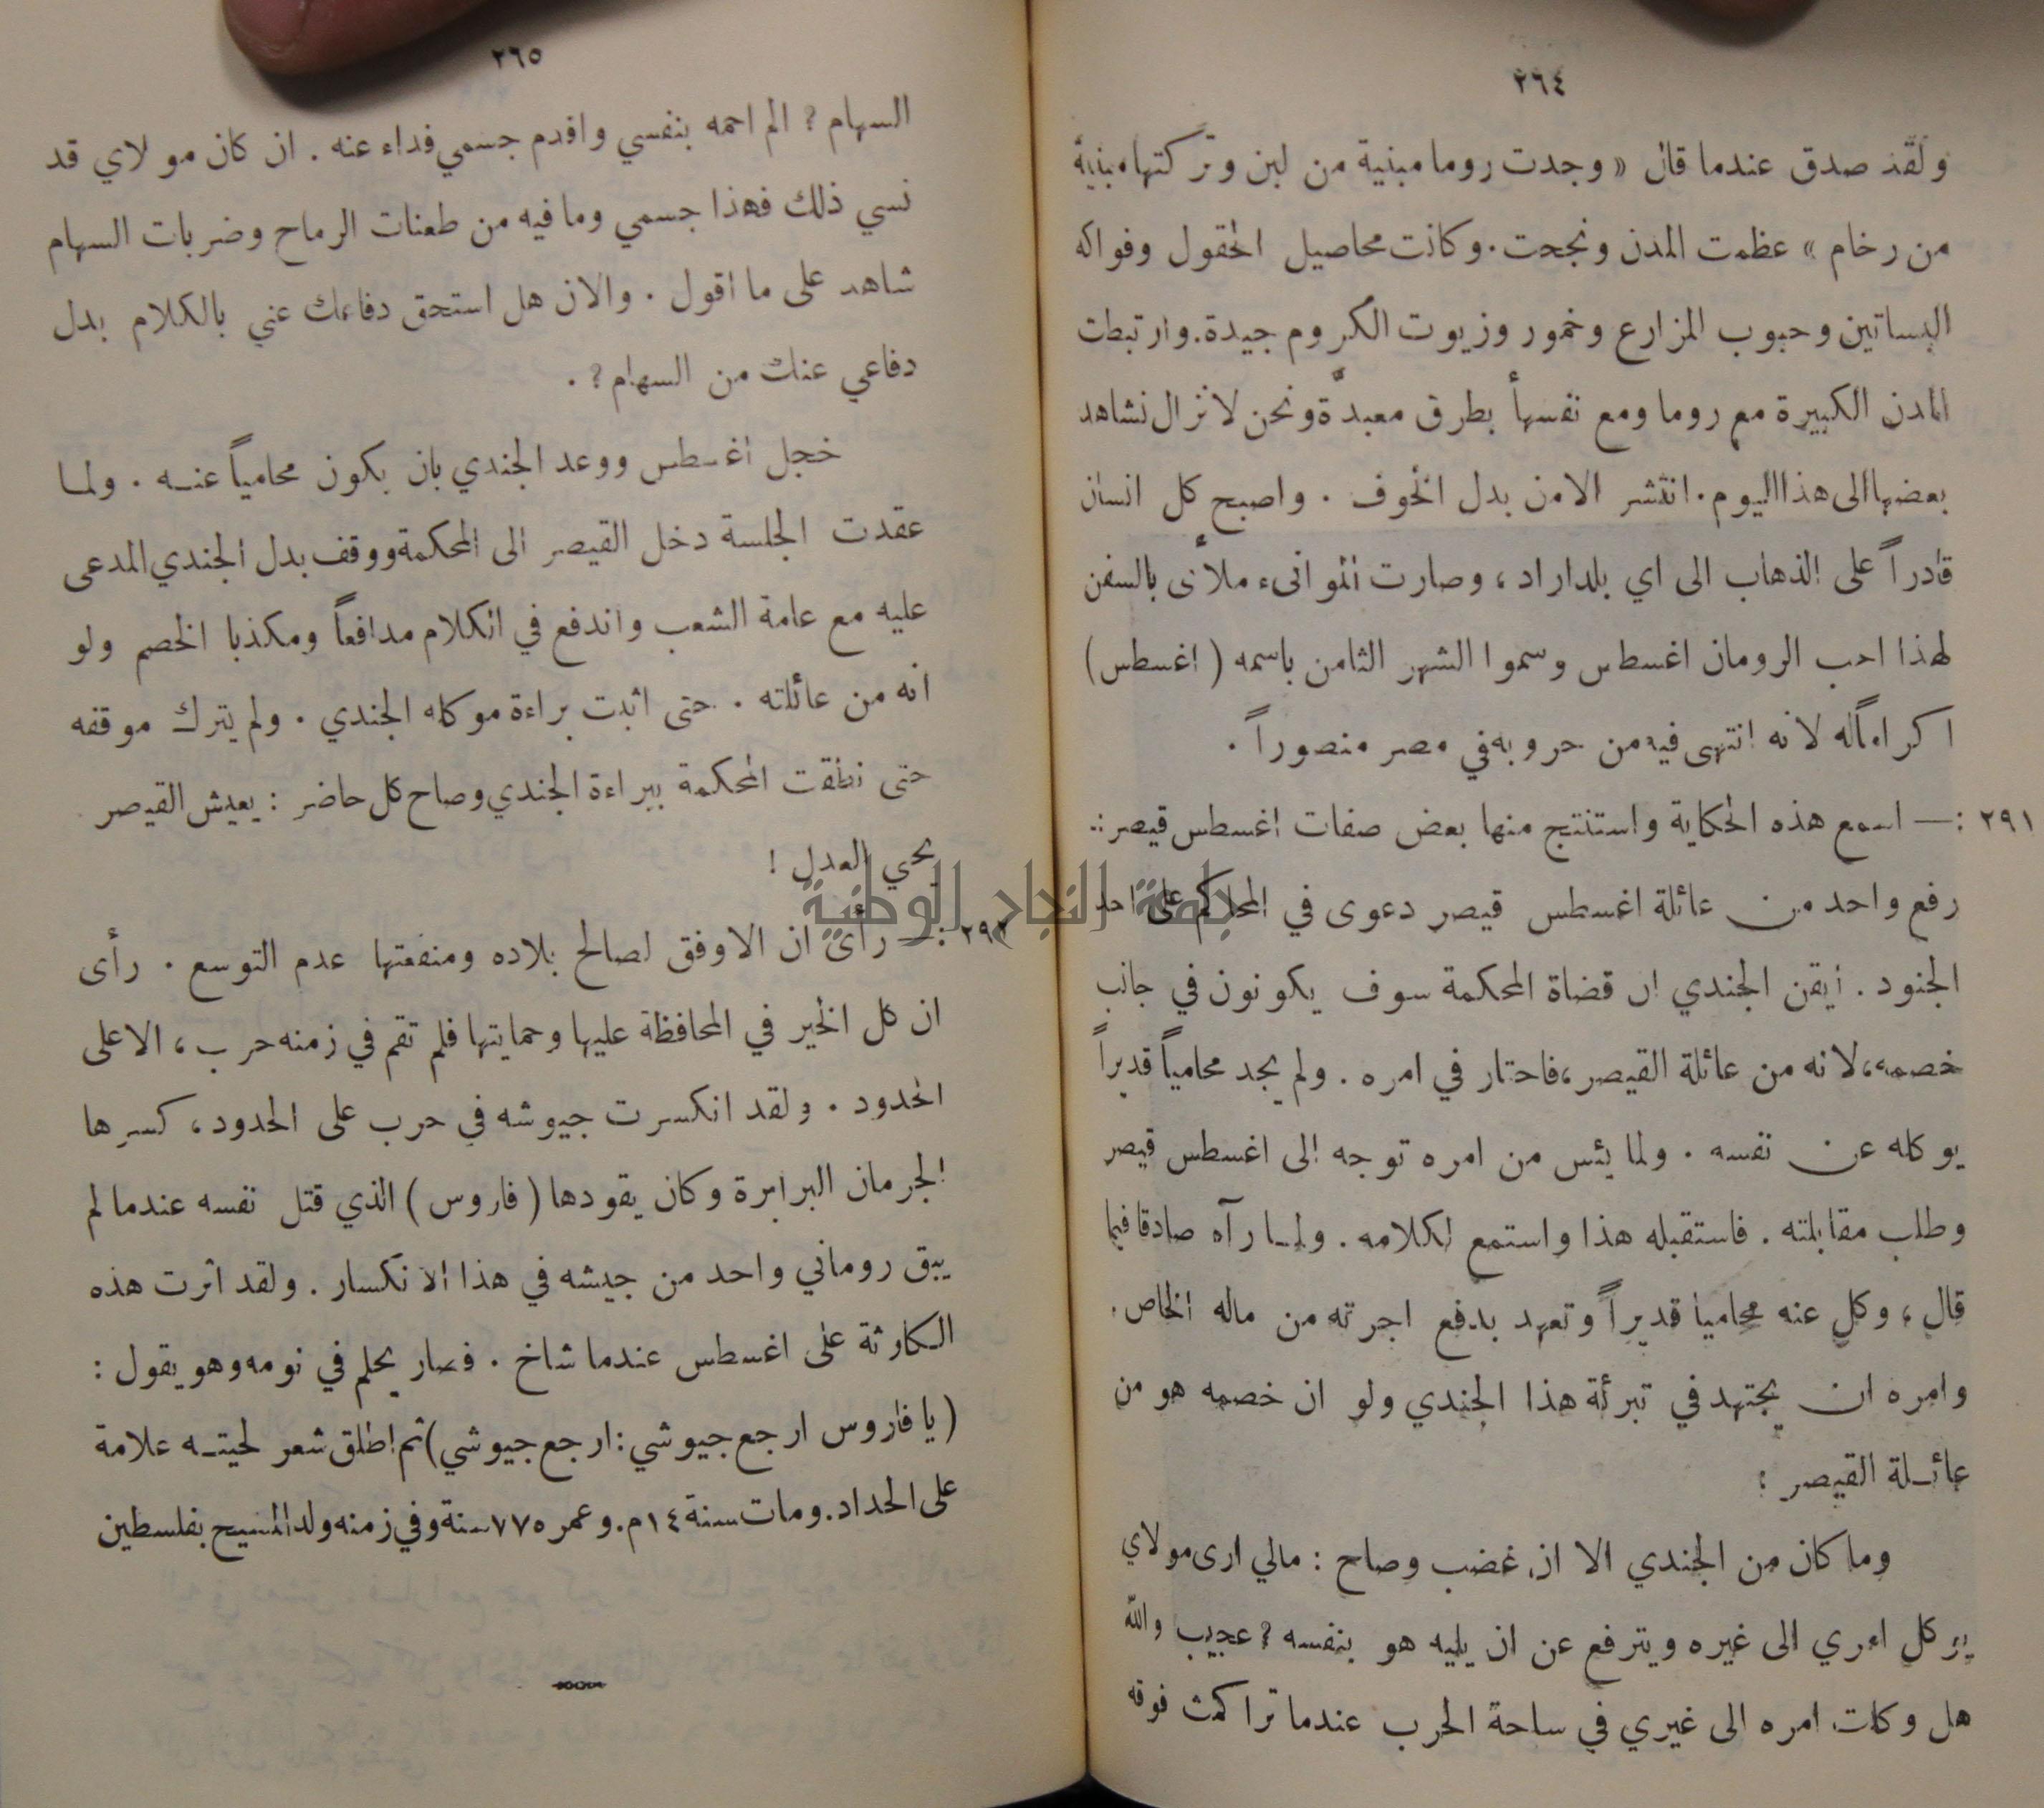 ٢٦٤
ولقد صدق عندما قال « وجدت روما مبنية من لبن وتركتها مبنية
من رخام » عظمت المدن ونجحت . وكانت محاصيل الحقول وفواكه
البساتين وحبوب المزارع وخمور وزيوت الكروم جيدة . وارتبطت
المدن الكبيرة مع روما ومع نفسها بطرق معبدّة ونحن لا نزال نشاهد
بعضها الى هذا اليوم . انتشر الامن بدل الخوف . واصبح كل انسان
قادراً على الذهاب الى اي بلد اراد ، وصارت الموانىء ملأى بالسفن
لهذا احب الرومان اغسطس وسموا الشهر الثامن باسمه ( اغسطس )
اكراماً له لانه انتهى فيه من حروبه في مصر منصوراً .
٢٩١ :— اسمع هذه الحكاية واستنتج منها بعض صفات اغسطس قيصر :.
رفع واحد من عائلة اغسطس قيصر دعوى في المحاكم على احد
الجنود . أيقن الجندي ان قضاة المحكمة سوف يكونون في جانب
خصمه ، لانه من عائلة القيصر ، فاحتار في امره . ولم يجد محامياً قديراً
يوكله عن نفسه . ولما يئس من امره توجه الى اغسطس قيصر
وطلب مقابلته . فاستقبله هذا واستمع لكلامه . ولما رآه صادقا فيما
قال ، وكل عنه محاميا قديراً وتعهد بدفع اجرته من ماله الخاص .
وامره ان يجتهد في تبرئة هذا الجندي ولو ان خصمه هو من
عائلة القيصر :
وما كان من الجندي الا ان غضب وصاح : مالي ارى مولاي
يوكل امري الى غيره ويترفع عن ان يليه هو بنفسه ? عجيب والله
هل وكلت امره الى غيري في ساحة الحرب عندما تراكمت فوقه
٢٦٥
السهام ? الم احمه بنفسي واقدم جسمي فداء عنه . ان كان مولاي قد
نسي ذلك فهذا جسمي وما فيه من طعنات الرماح وضربات السهام
شاهد على ما اقول . والان هل استحق دفاعك عني بالكلام بدل
دفاعي عنك من السهام ? .
خجل اغسطس ووعد الجندي بان يكون محامياً عنه . ولما
عقدت الجلسة دخل القيصر الى المحكمة ووقف بدل الجندي المدعى
عليه مع عامة الشعب واندفع في الكلام مدافعاً ومكذبا الخصم ولو
انه من عائلته . حتى اثبت براءة موكله الجندي . ولم يترك موقفه
حتى نطقت المحكمة ببراءة الجندي وصاح كل حاضر : يعيش القيصر
يحي العدل !
٢٩٢ :— رأى ان الاوفق لصالح بلاده ومنفعتها عدم التوسع . رأى
ان كل الخير في المحافظة عليها وحمايتها فلم تقم في زمنه حرب ، الا على
الحدود . ولقد انكسرت جيوشه في حرب على الحدود ، كسرها
الجرمان البرابرة وكان يقودها ( فاروس ) الذي قتل نفسه عندما لم
يبق روماني واحد من جيشه في هذا الانكسار . ولقد اثرت هذه
الكارثة على اغسطس عندما شاخ . فصار يحلم في نومه وهو يقول :
( يا فاروس ارجع جيوشي : ارجع جيوشي ) ثم اطلق شعر لحيته علامة
على الحداد . ومات سنة ١٤ م . وعمره ٧٧ سنة وفي زمنه ولد المسيح بفلسطين
جامعة النجاح الوطنية